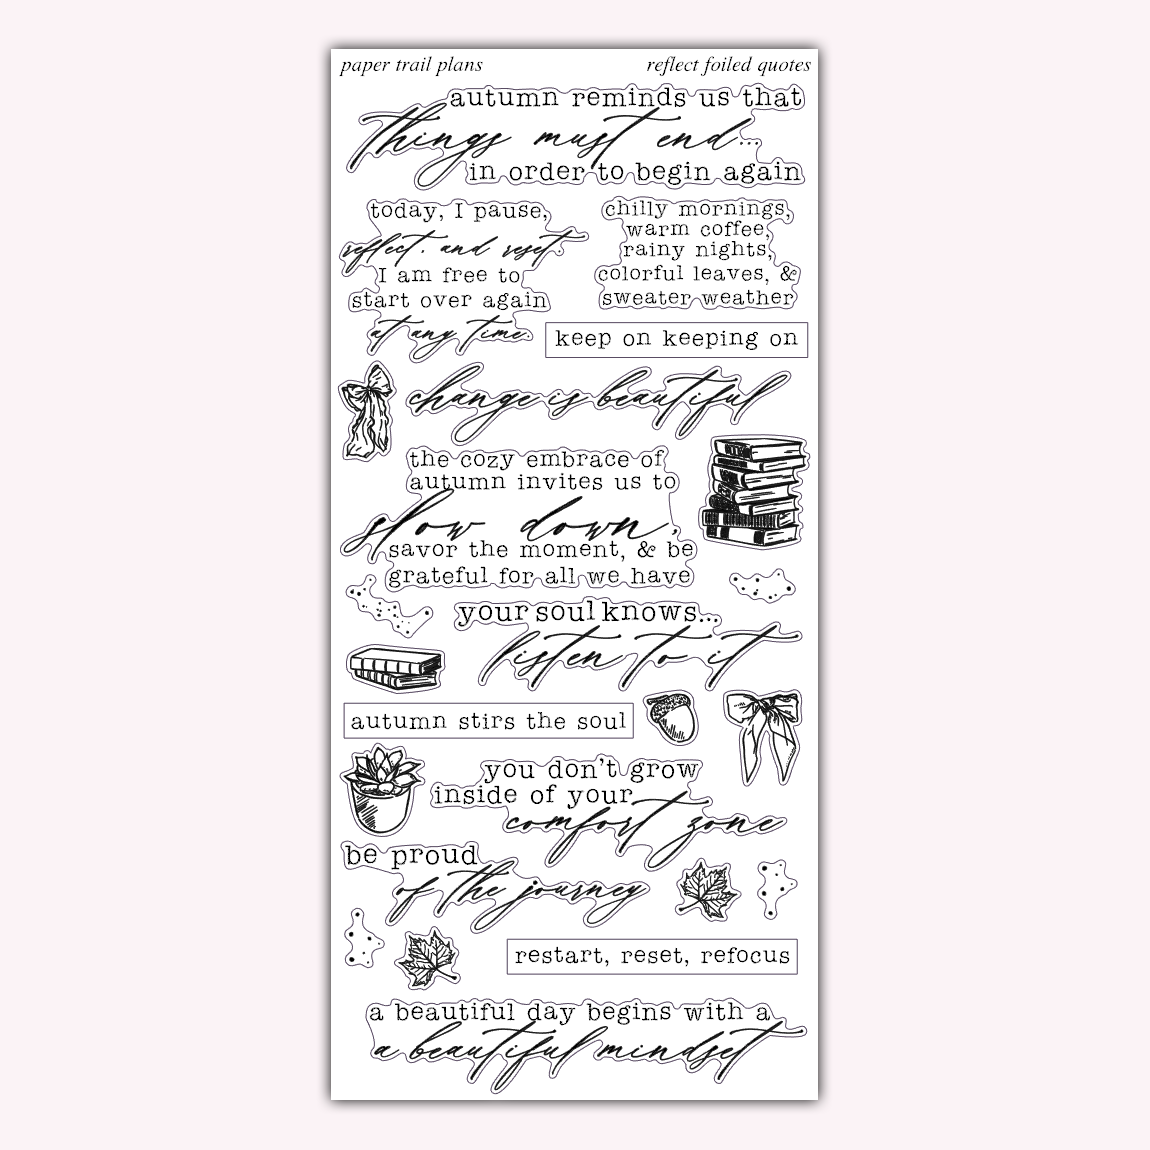 paper trail plans
reflect foiled quotes
autumn reminds us that
things must end...
in order to begin again
today, I pause,
reflect, and reset.
I am free to
start over again
at any time.
chilly mornings,
warm coffee,
rainy nights,
colorful leaves, &
sweater weather
keep on keeping on
change is beautiful
the cozy embrace of
autumn invites us to
slow down,
savor the moment, & be
grateful for all we have
your soul knows...
listen to it
autumn stirs the soul
you don't grow
inside of your
comfort zone
be proud
of the journey
restart, reset, refocus
a beautiful day begins with a
a beautiful mindset